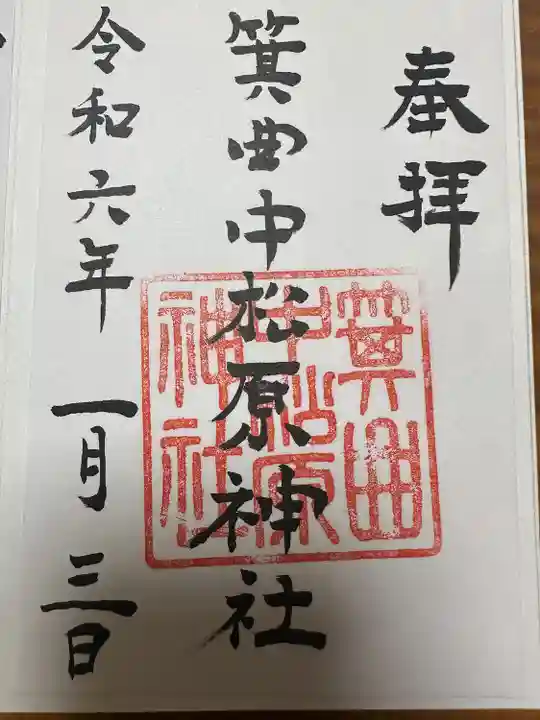 奉拝
箕曲中松原神社
箕曲
中松原
神社
令和六年一月三日